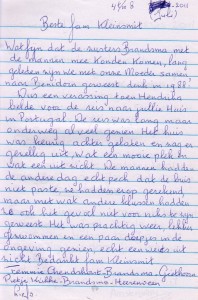 4568
2011
(Juli)
Beste fam Kleinsmit
Wat fijn dat de zusters Brandsma met
de mannen mee konden komen, lang
geleden zijn we met onze Moeder samen
naar Benidorn geweest denk in 1988.
Dus een verassing toen Hendrika
belde voor de reis naar jullie Huis
in Portugal. De reis was lang maar
onderweg al veel genien. Het huis
was keurig achter gelaten en zag er
gezellig uit, wat een mooie plek en
wat een uit zicht. De mannen hadden
de andere dag echt pech dat de buis
niet paste ze hadden erop gerekend
maar met wat andere klussen hadden
ze ook het gevoel niet voor niks te zijn
geweest. Het was prachtig weer, lekker
gezwommen en een paar dagjes in de
omgeving genien, echt een weids uit
zicht. Bedankt fam Kleinsmit
Brandsma Giethoorn
Pietje Brandsma Heerenveen